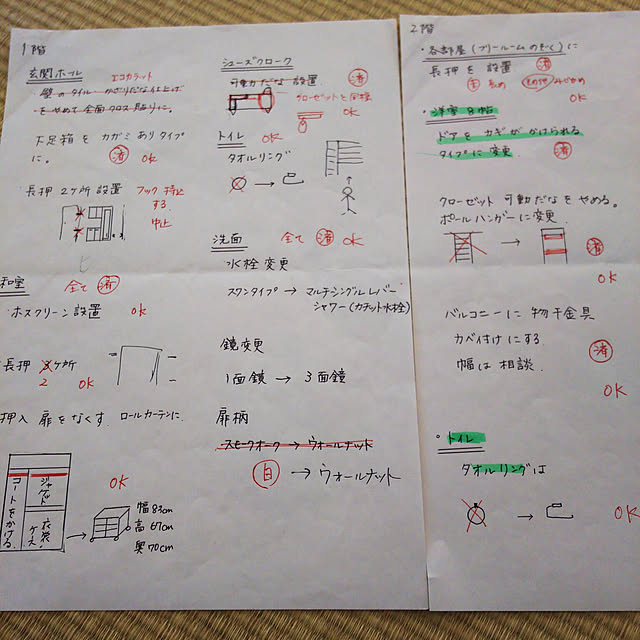 1階
玄関ホール エコカラット
壁のタイル かざりだな仕上げ
をやめて全面クロス貼りに。
下足箱を カガミありタイプ
に。 済 OK
長押 2ヶ所 設置 フック 持込
する
中止
和室 全て 済
ホスクリーン設置 OK
長押 3ヶ所
2 OK
押入 扉をなくす ロールカーテンに
OK
コートをかける
ジャケット
衣装ケース
幅83cm
高67cm
奥70cm
シューズクローク
可動だな 設置 済
クローゼットと同様
OK
トイレ OK
タオルリング
洗面 全て 済 OK
水栓変更
スワンタイプ → マルチシングルレバー
シャワー(カチット水栓)
鏡変更
1面鏡 → 3面鏡
扉柄
スモークオーク → ウォールナット
白 → ウォールナット
2階
・各部屋(フリールームのぞく)に
長押を設置 済
OK
・洋室8帖
ドアを カギがかけられる
タイプに変更 済
クローゼット 可動だなをやめる。
ポールハンガーに変更.
済
OK
バルコニーに 物干金具
カベ付けにする
幅は相談. 済
OK
・トイレ
タオルリングは
OK